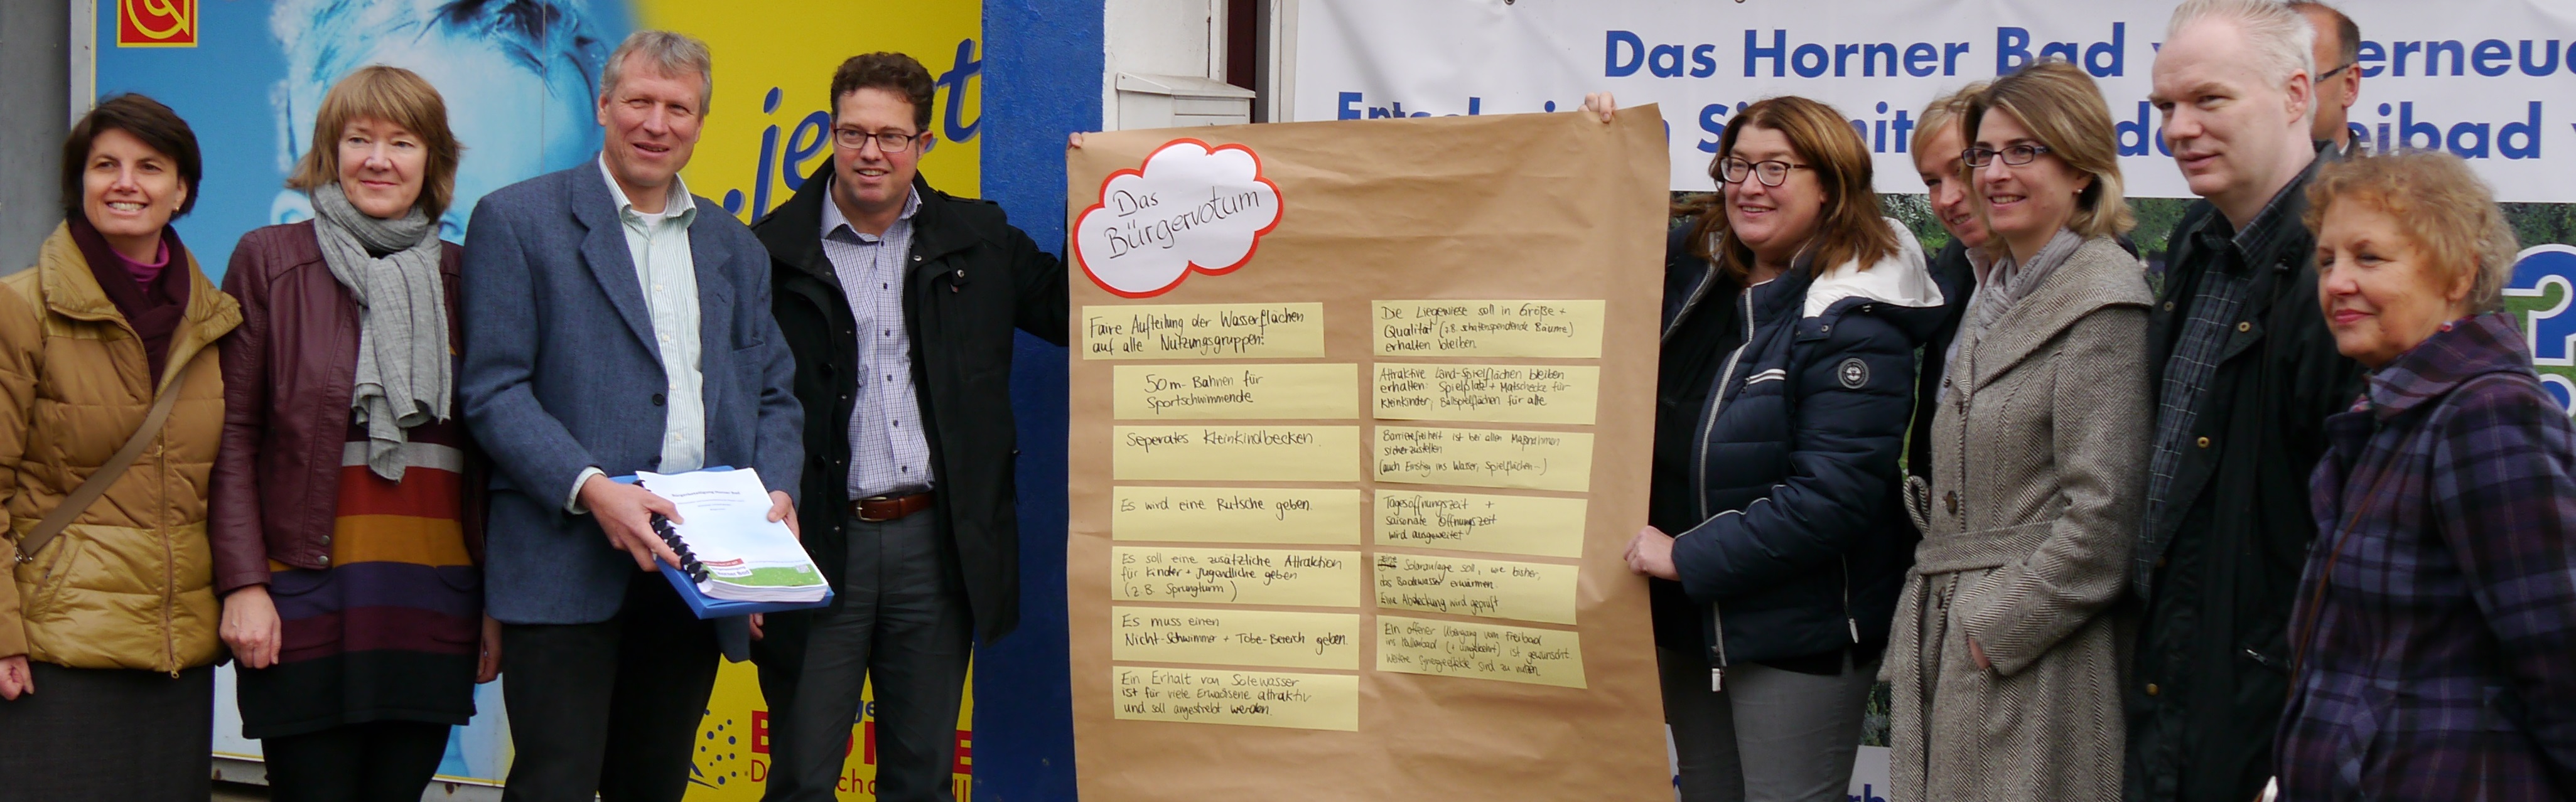 ..jetzt
Das Horner Bad erneue
Sie mit
eibad
?
Das
Bürgervotum
Faire Aufteilung der Wasserflächen
auf alle Nutzungsgruppen!
50m-Bahnen für
Sportschwimmende
Seperates Kleinkindbecken.
Es wird eine Rutsche geben.
Es soll eine zusätzliche Attraktion
für Kinder + Jugendliche geben
(z.B. Sprungturm)
Es muss einen
Nicht-Schwimmer + Tobe-Bereich geben.
Ein Erhalt von Solewasser
ist für viele Erwachsene attraktiv
und soll angestrebt werden.
Die Liegewiese soll in Größe +
Qualität (z.B. schattenspendende Bäume)
erhalten bleiben.
Attraktive Land-Spielflächen bleiben
erhalten: Spielplatz + Matschecke für
Kleinkinder, Ballspielflächen für alle
Barrierefreiheit ist bei allen Maßnahmen
sicherzustellen
(auch Einstieg ins Wasser, Spielflächen...)
Tagesöffnungszeit +
saisonale Öffnungszeit
wird ausgeweitet
Solaranlage soll, wie bisher,
das Badewasser erwärmen.
Eine Abdeckung wird geprüft
Ein offener Übergang vom Freibad
ins Hallenbad (+ umgekehrt) ist gewünscht.
Weitere Synergieeffekte sind zu nutzen.
Horner Bad